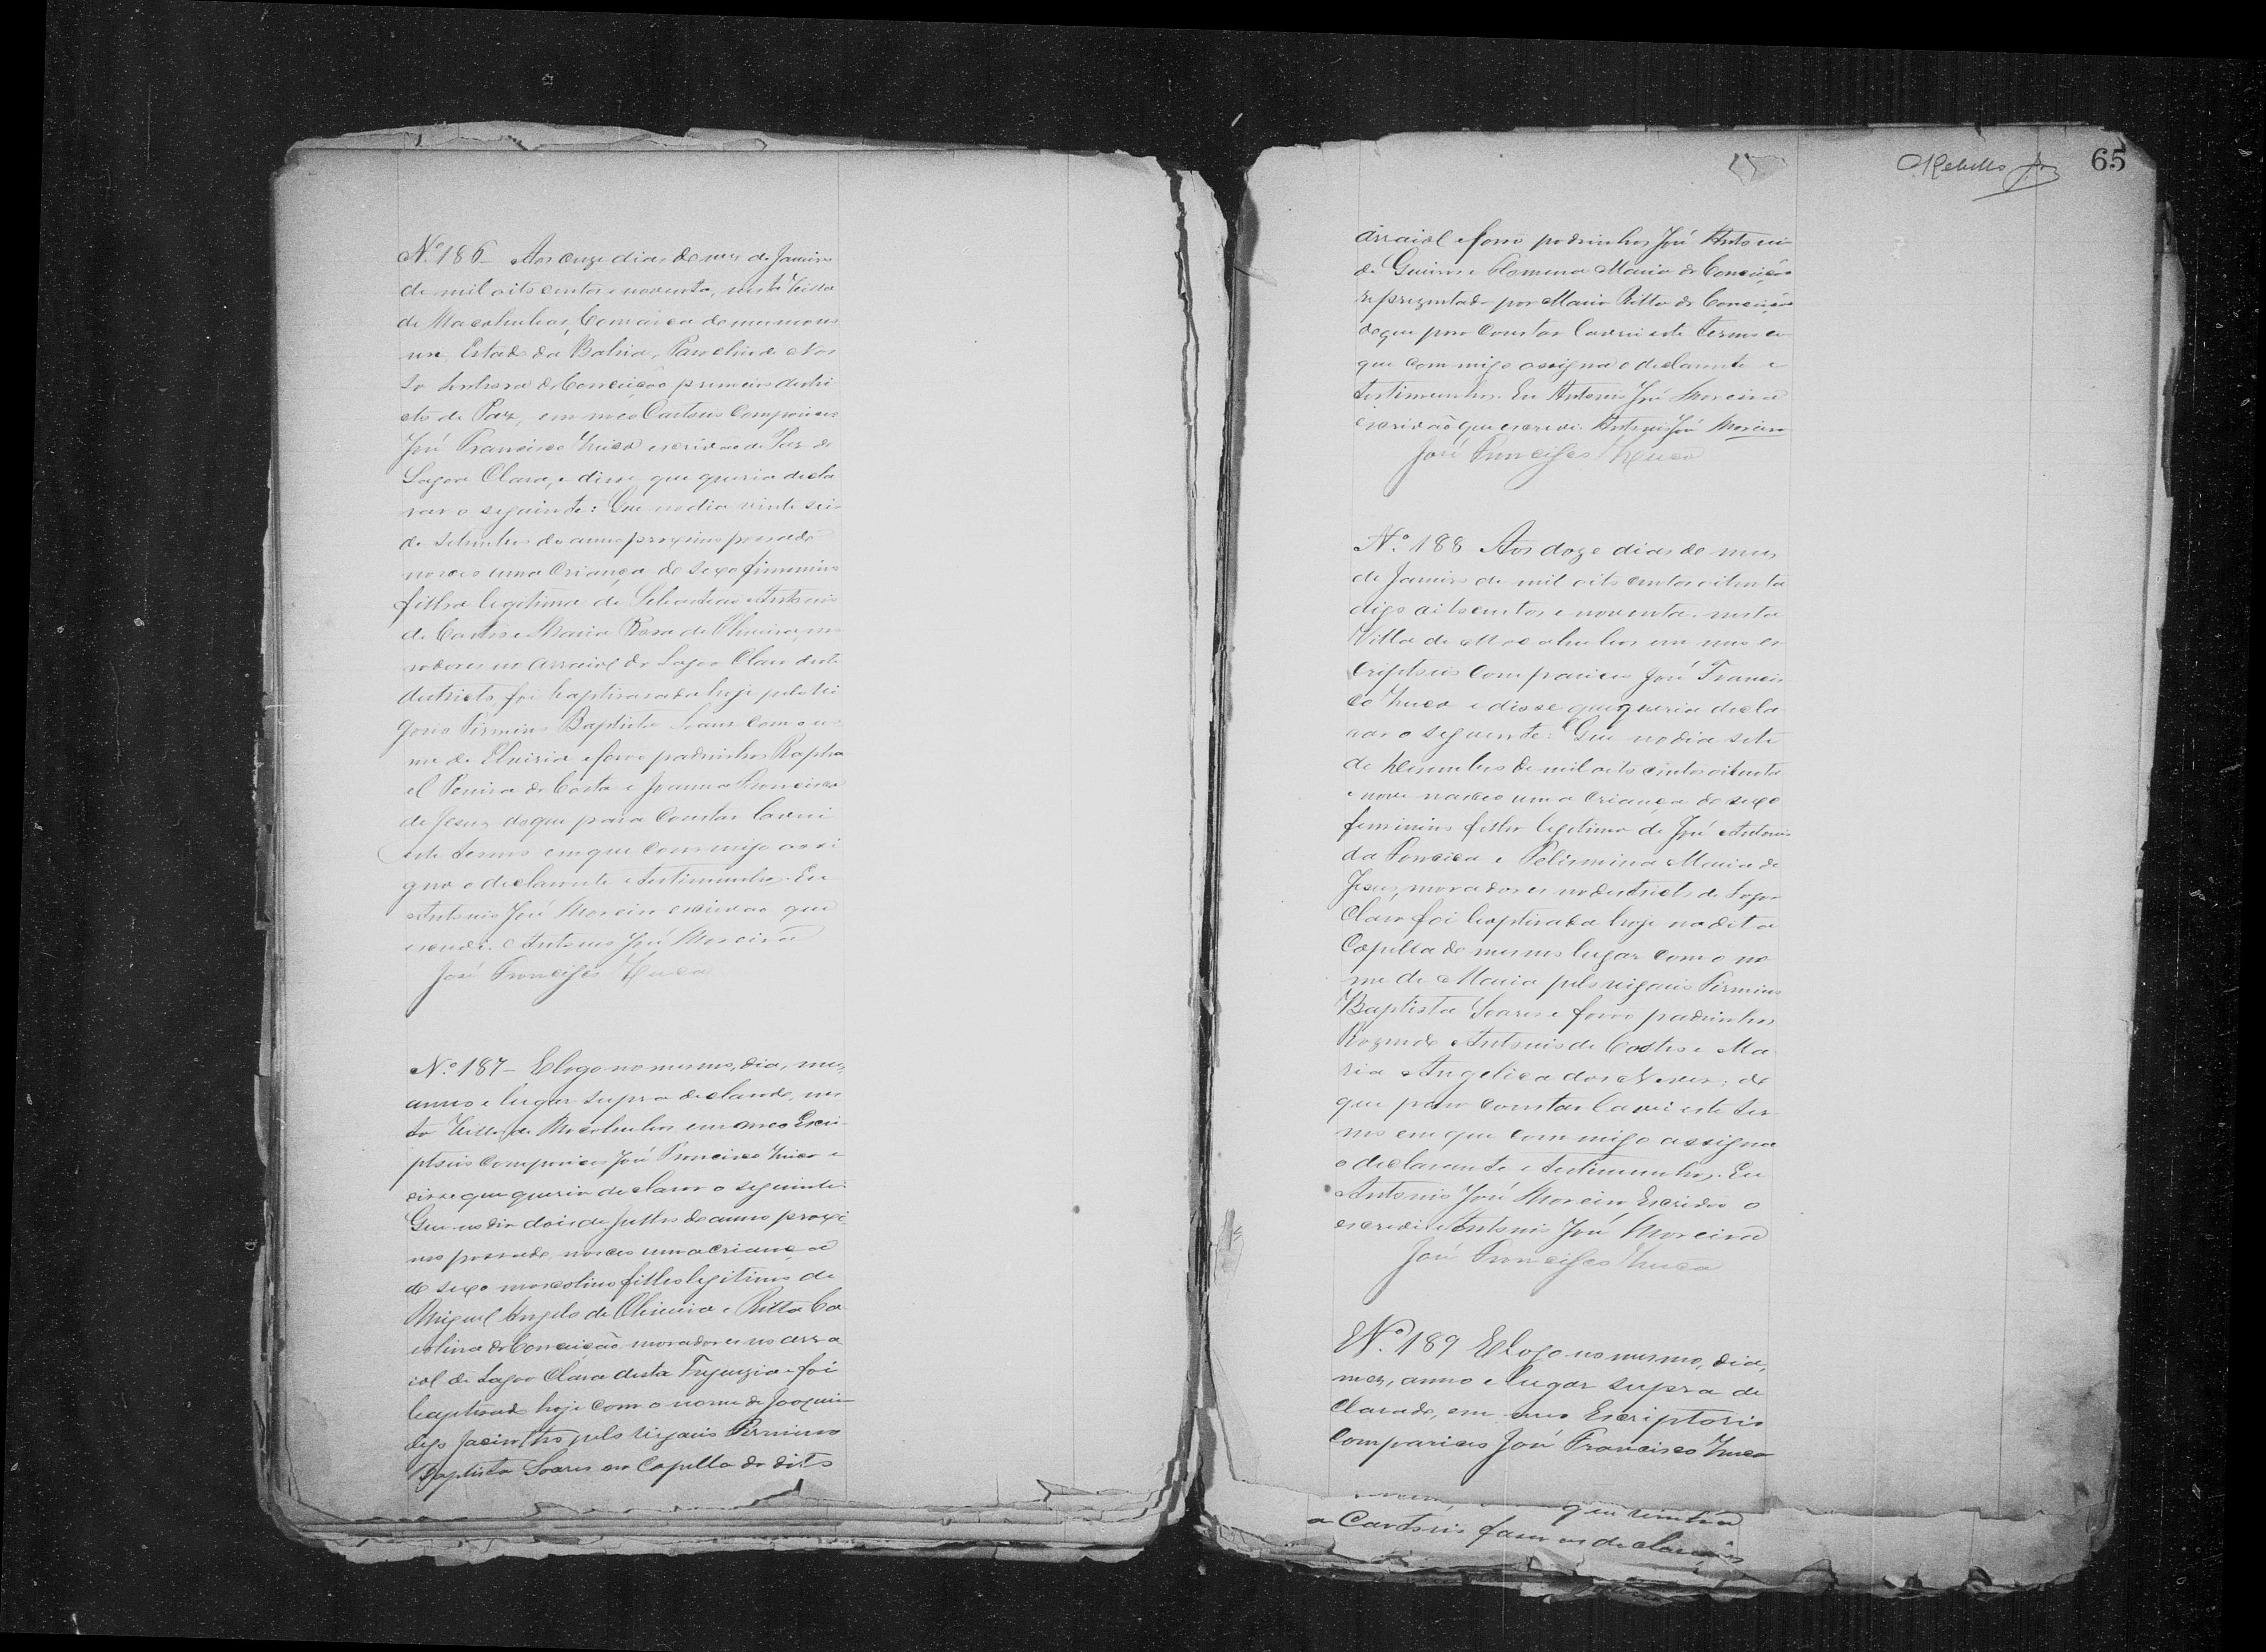 Nº 186 - Aos onze dias do mez de Janeiro
de mil oitocentos e noventa, nesta Villa
de Macahubas, Comarca do mesmo no
me, Estado da Bahia, Parochia de Nos
sa Senhora da Conceição primeiro destri
cto de Paz, em meo Cartorio Compareceo
José Francisco Zuca escrivão de Paz da
Lagoa Clara, e disse que queria decla
rar o seguinte: Que no dia vinte seis
de Setembro do anno proximo passado
nasceo uma Criança do sexo feminino
filha legitima de Sebastião Antonio
de Castro e Maria Rosa de Oliveira, mo
radores no arraial da Lagoa Clara deste
destricto, foi baptisarada hoje pelo Vi
gario Firmino Baptista Soares com o no
me de Elvisia e foro padrinhos Rapha
el Pereira da Costa e Joanna Francisca
de Jesus, do que para Constar lavrei
este termo em que commigo assi
gna o declarante e testimunhas. Eu
Antonio José Moreira escrivão que
escrevi. Antonio José Moreira
José Francisco Zuca
Nº 187 - E logo no mesmo, dia, mez,
anno e lugar supra declarado, nes
ta Villa de Macahubas em meo Escri
ptorio Compareceo José Francisco Zuca e
disse que queria declarar o seguinte:
Que no dia dois de Julho do anno proxi
mo passado nasceo uma criança
do sexo mascolino filho legitimo de
Miguel Angelo de Oliveira e Ritta Ca
rolina da Conceição moradores no arra
ial de Lagoa Clara desta Freguezia e foi
baptisado hoje com o nome de Joaquim
digo Jacintho pelo Vigario Firmino
Baptista Soares na Capella do dito
Rebello Jr 65
arraial e foro padrinhos José Antonio
de e Maria da Conceição
reprezentada por Maria Ritta da Conceição
do que para Constar lavrei este termo em
que commigo assigna o declarante e
testimunhas. Eu Antonio José Moreira
escrivão que escrevi. Antonio José Moreira
José Francisco Zuca
Nº 188 Aos doze dias do mez
de Janeiro de mil oitocentos oitenta
digo oitocentos e noventa nesta
Villa de Macahubas em meo es
criptorio compareceo José Francis
co Zuca e disse que queria decla
rar o seguinte: Que no dia sete
de Dezembro de mil oitocentos oitenta
e nove nasceo uma criança do sexo
feminino filha legitima de José Antonio
da Fonceca e Felismina Maria de
Jesus, moradores no destricto de Lagoa
Clara foi baptisada hoje na dita
Capella do mesmo lugar com o no
me de Maria pelo vigario Firmino
Baptista Soares e foro padrinhos
Rozendo Antonio de Castro e Ma
ria Angelica das Neves; do
que para constar lavrei este ter
mo em que commigo assigna
o declarante e testimunhas. Eu
Antonio José Moreira Escrivão o
escrevi. Antonio José Moreira
José Francisco Zuca
Nº 189 E logo no mesmo, dia,
mez, anno e lugar supra de
clarado, em meo Escriptorio
Compareceo José Francisco Zuca
que
a Cartorio fazer as declarações